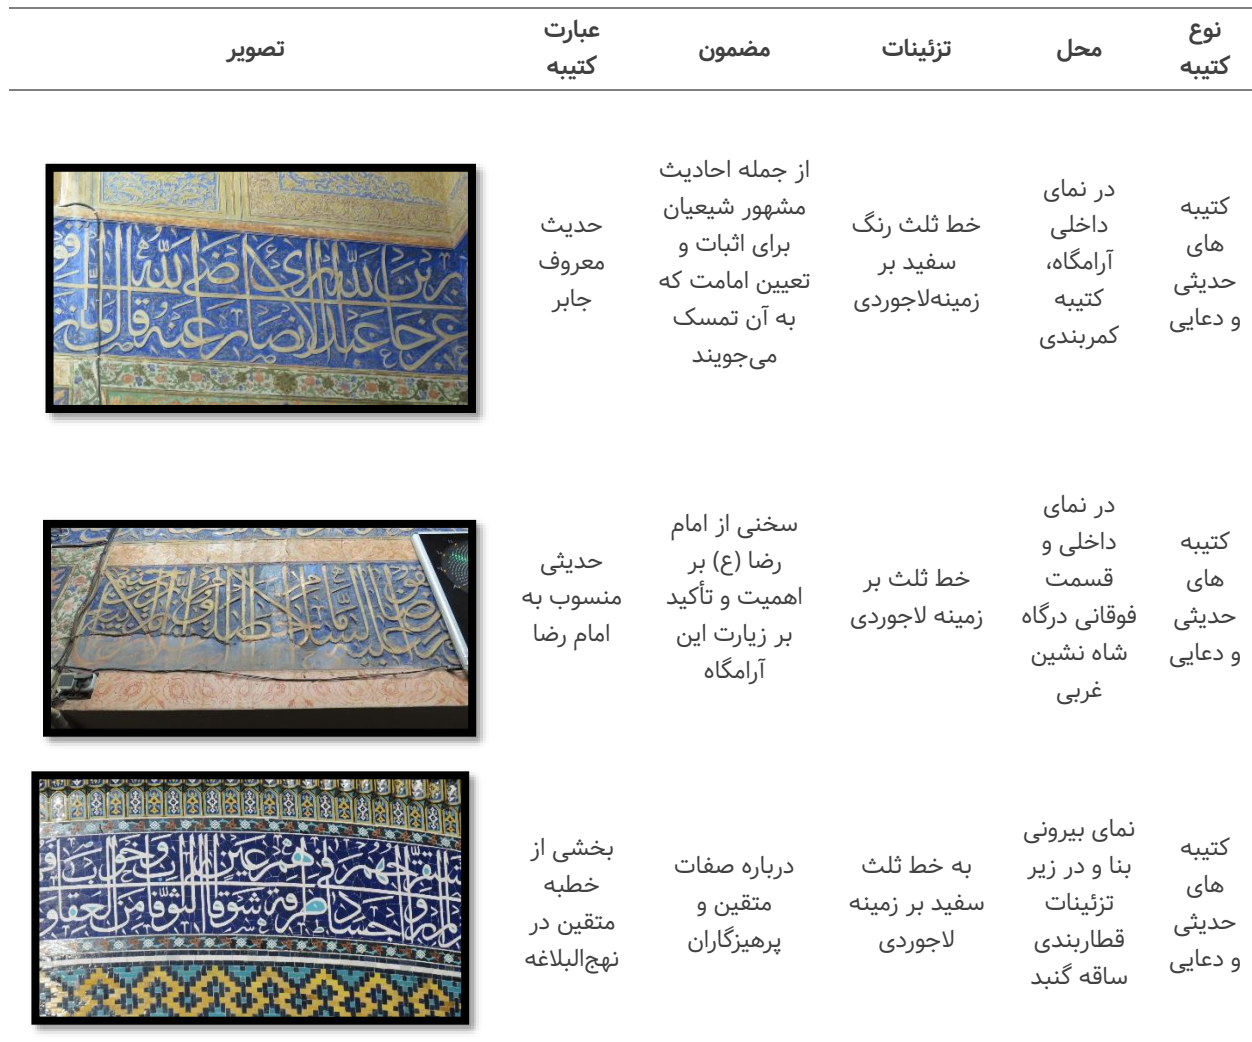 نوع
کتیبه
محل
تزئینات
مضمون
عبارت
کتیبه
تصویر
کتیبه
های
حدیثی
و دعایی
در نمای
داخلی
آرامگاه،
کتیبه
کمربندی
خط ثلث رنگ
سفید بر
زمینه‌لاجوردی
از جمله احادیث
مشهور شیعیان
برای اثبات و
تعیین امامت که
به آن تمسک
می‌جویند
حدیث
معروف
جابر
کتیبه
های
حدیثی
و دعایی
در نمای
داخلی و
قسمت
فوقانی درگاه
شاه نشین
غربی
خط ثلث بر
زمینه لاجوردی
سخنی از امام
رضا (ع) بر
اهمیت و تأکید
بر زیارت این
آرامگاه
حدیثی
منسوب به
امام رضا
کتیبه
های
حدیثی
و دعایی
نمای بیرونی
بنا و در زیر
تزئینات
قطاربندی
ساقه گنبد
به خط ثلث
سفید بر زمینه
لاجوردی
درباره صفات
متقین و
پرهیزگاران
بخشی از
خطبه
متقین در
نهج‌البلاغه